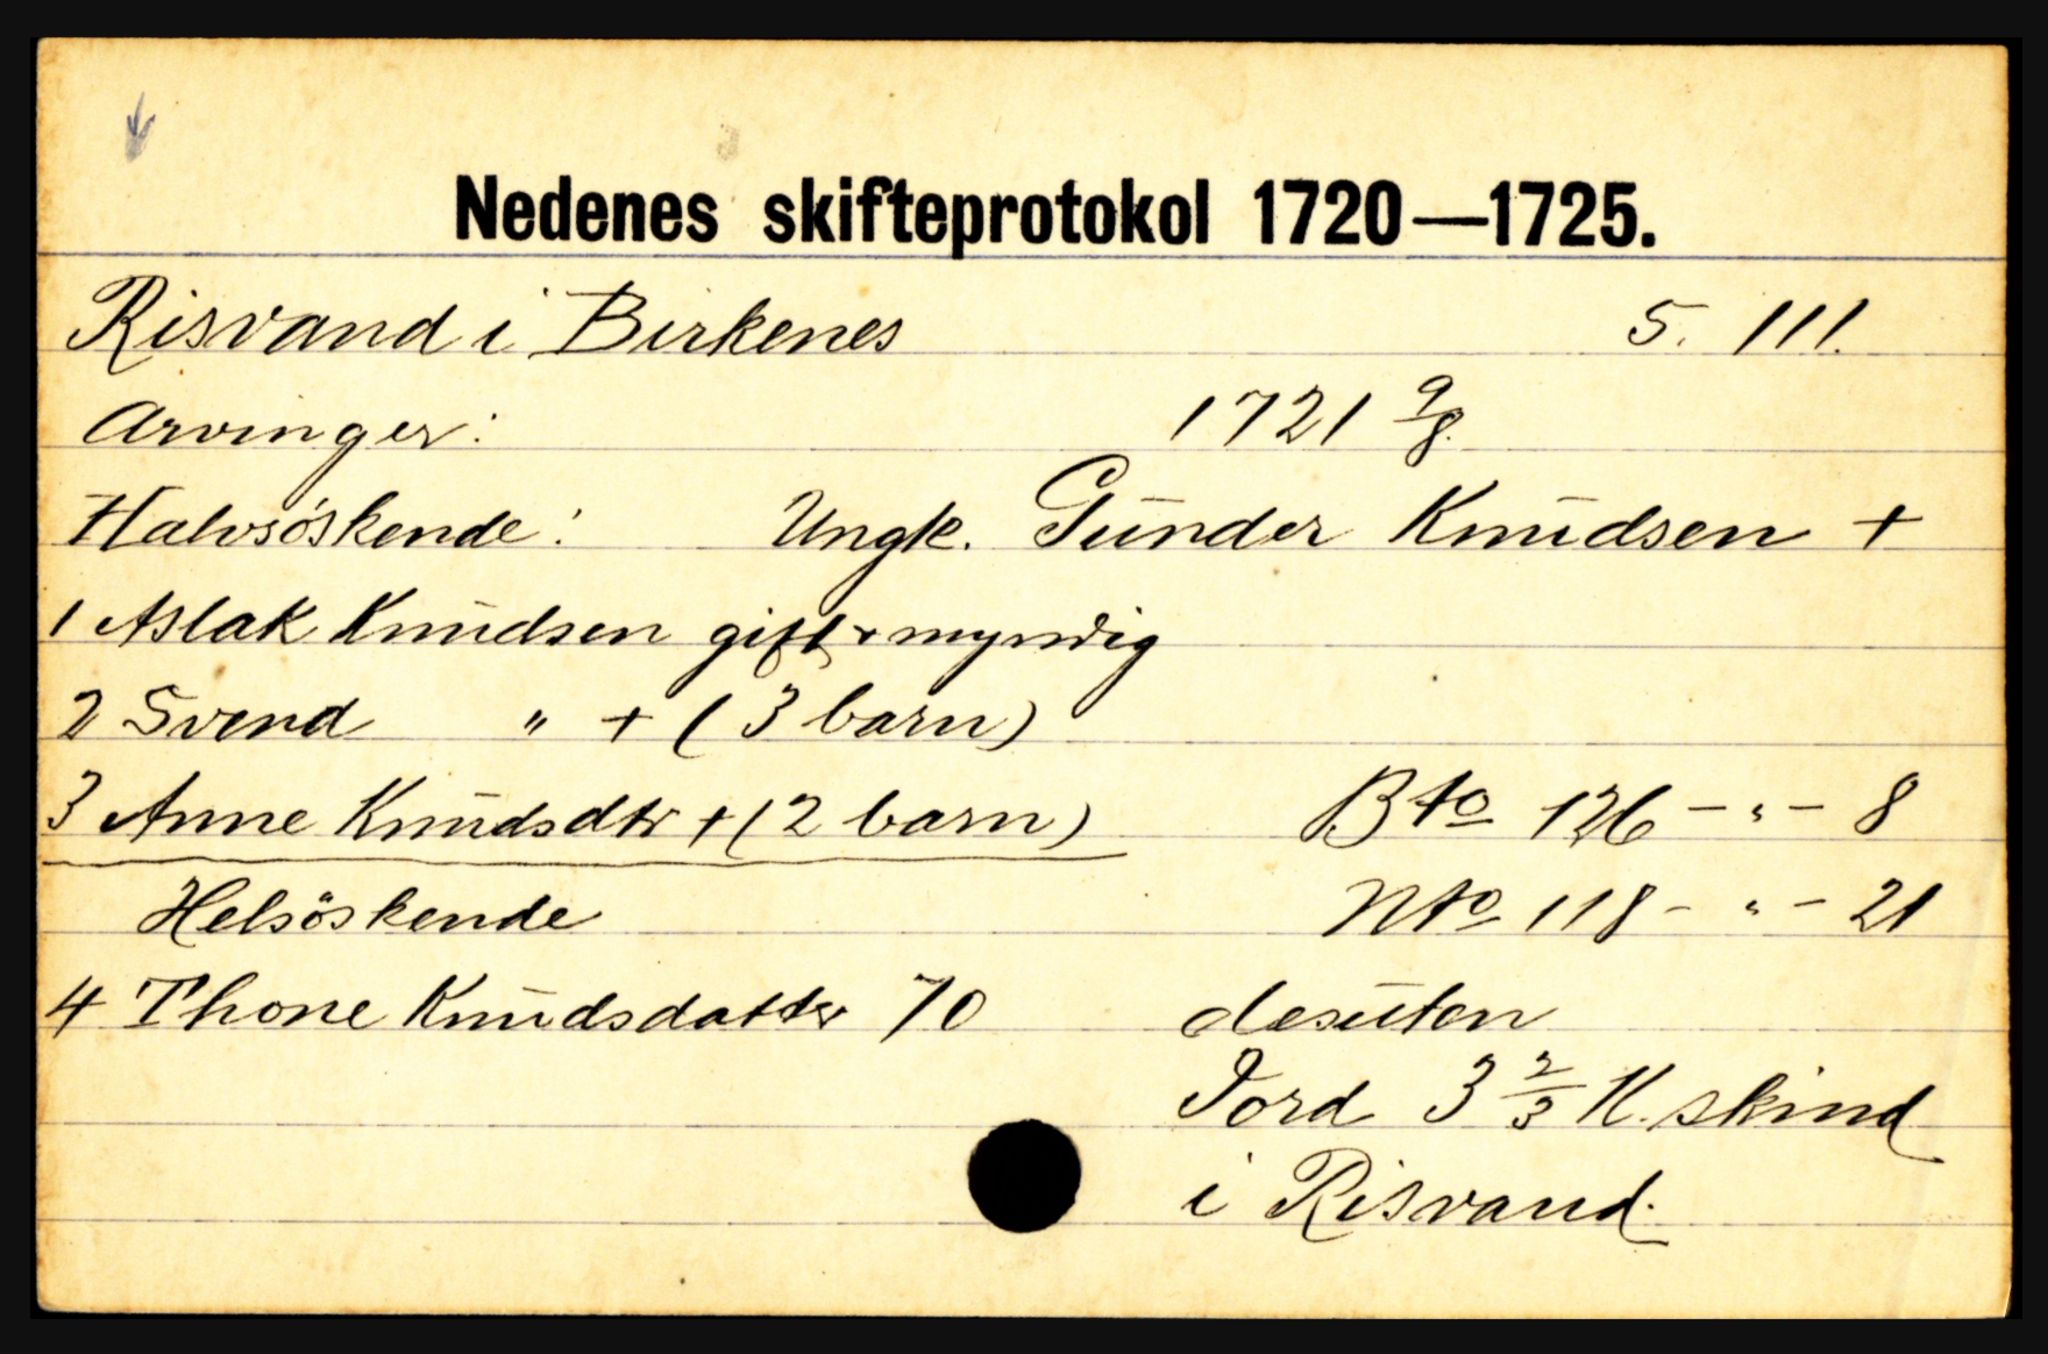 Nedenes skifteprotokol 1720—1725.
Risvand i Birkenes 5. 111.
Arvinger: 1721 9/8.
Halvsöskende: Ungk. Gunder Knudsen +
1 Aslak Knudsen gift + myndig
2 Svend " + (3 barn)
3 Anne Knudsdtr + (2 barn) Bto 126 - " - 8
Helsöskende Nto 118 - " - 21
4 Thone Knudsdatter 70 desuten
Jord 3 2/3 K. skind
i Risvand.